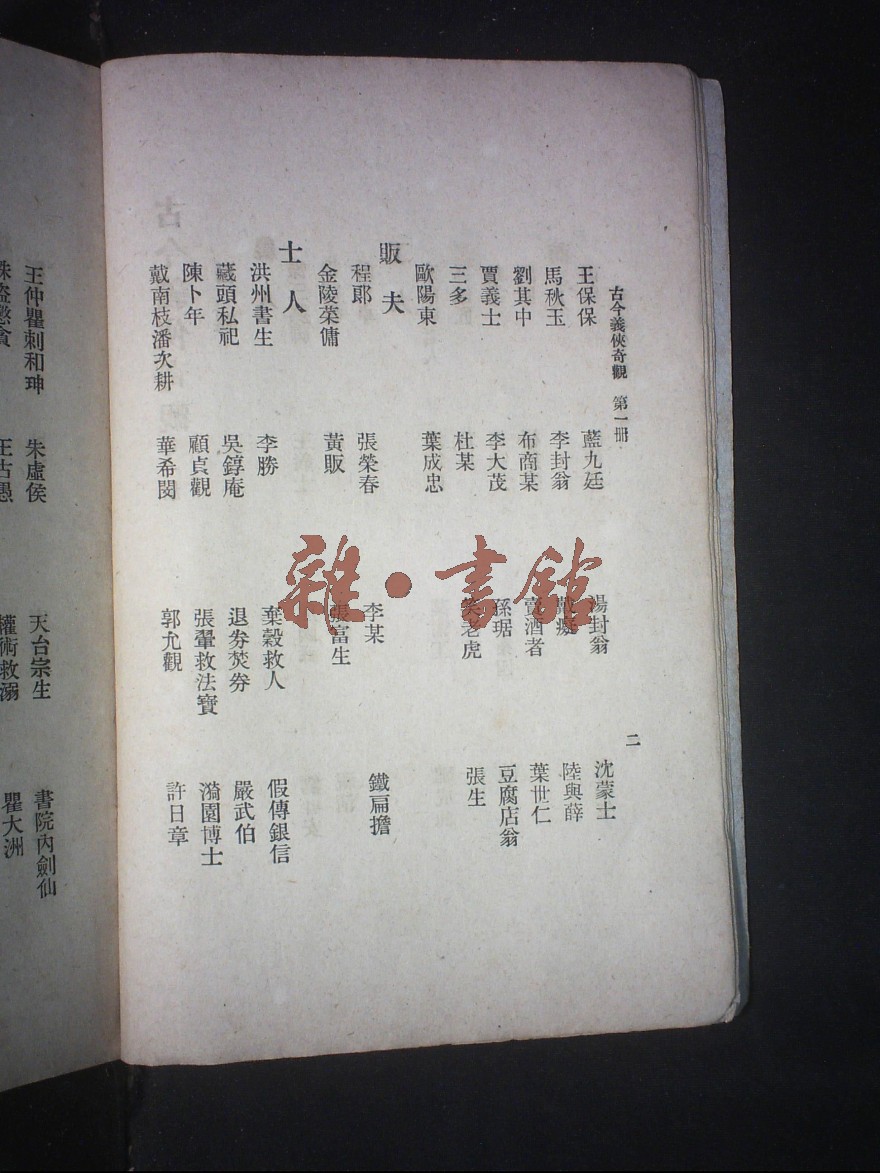 古今義俠奇觀 第一冊 二
王保保 藍九廷 封翁 沈蒙士
馬秋玉 李封翁 陸與薛
劉其中 布商某 賣酒者 葉世仁
賈義士 李大茂 孫琚 豆腐店翁
三多 杜某 老虎 張生
歐陽東 葉成忠
販夫
程郎 張榮春 李某 鐵扁擔
金陵菜傭 黃販 張富生
士人
洪州書生 李勝 棄穀救人 假傳銀信
藏頭私祀 吳錞庵 退券焚券 嚴武伯
陳卜年 顧貞觀 張翬救法寶 漪園博士
戴南枝潘次耕 華希閔 郭允觀 許日章
王仲瞿刺和珅 朱虛侯 天台宗生 書院內劍仙
誅盜懲貪 王古愚 權術救溺 瞿大洲
雜·書館